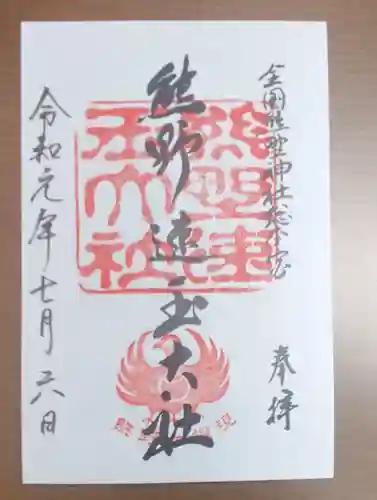 全国熊野神社総本宮
奉拝
熊野速玉大社
令和元年七月六日
熊野速玉大社